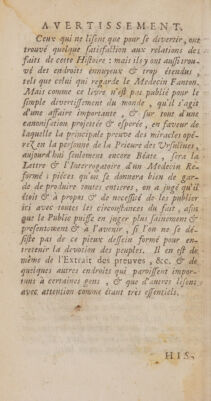 AVERTISSEMENT.
Ceux qui ne lisent que pour se divertir, ont
trouvé quelque satisfaction aux relations des
faits de cette Histoire : mais ils y ont aussi trou-
vé des endroits ennuyeux & trop étendus,
tels que celui qui regarde le Medecin Fanton.
Mais comme ce livre n'est pas publié pour le
simple divertissement du monde, qu'il s'agit
d'une affaire importante, & sur tout d'une
canonisation projettée & esperée, en faveur de
laquelle la principale preuve des miracles ope-
rez en la personne de la Prieure des Ursulines,
aujourd'hui seulement encore Béate, sera la
Lettre & l'Interrogatoire d'un Medecin Re-
formé ; pièces qu'on se donnera bien de gar-
de de produire toutes entieres, on a jugé qu'il
étoit & à propos & de necessité de les publier
ici avec toutes les circonstances du fait, afin
que le Public puisse en juger plus sainement &
presentement & à l'avenir, si l'on ne se dé-
siste pas de ce pieux dessein formé pour en-
tretenir la devotion des peuples. Il en est de
même de l'Extrait des preuves, &c. & de
quelques autres endroits qui paroissent impor-
tuns à certaines gens, & que d'autres lisent
avec attention comme étant très essentiels.
HIS-